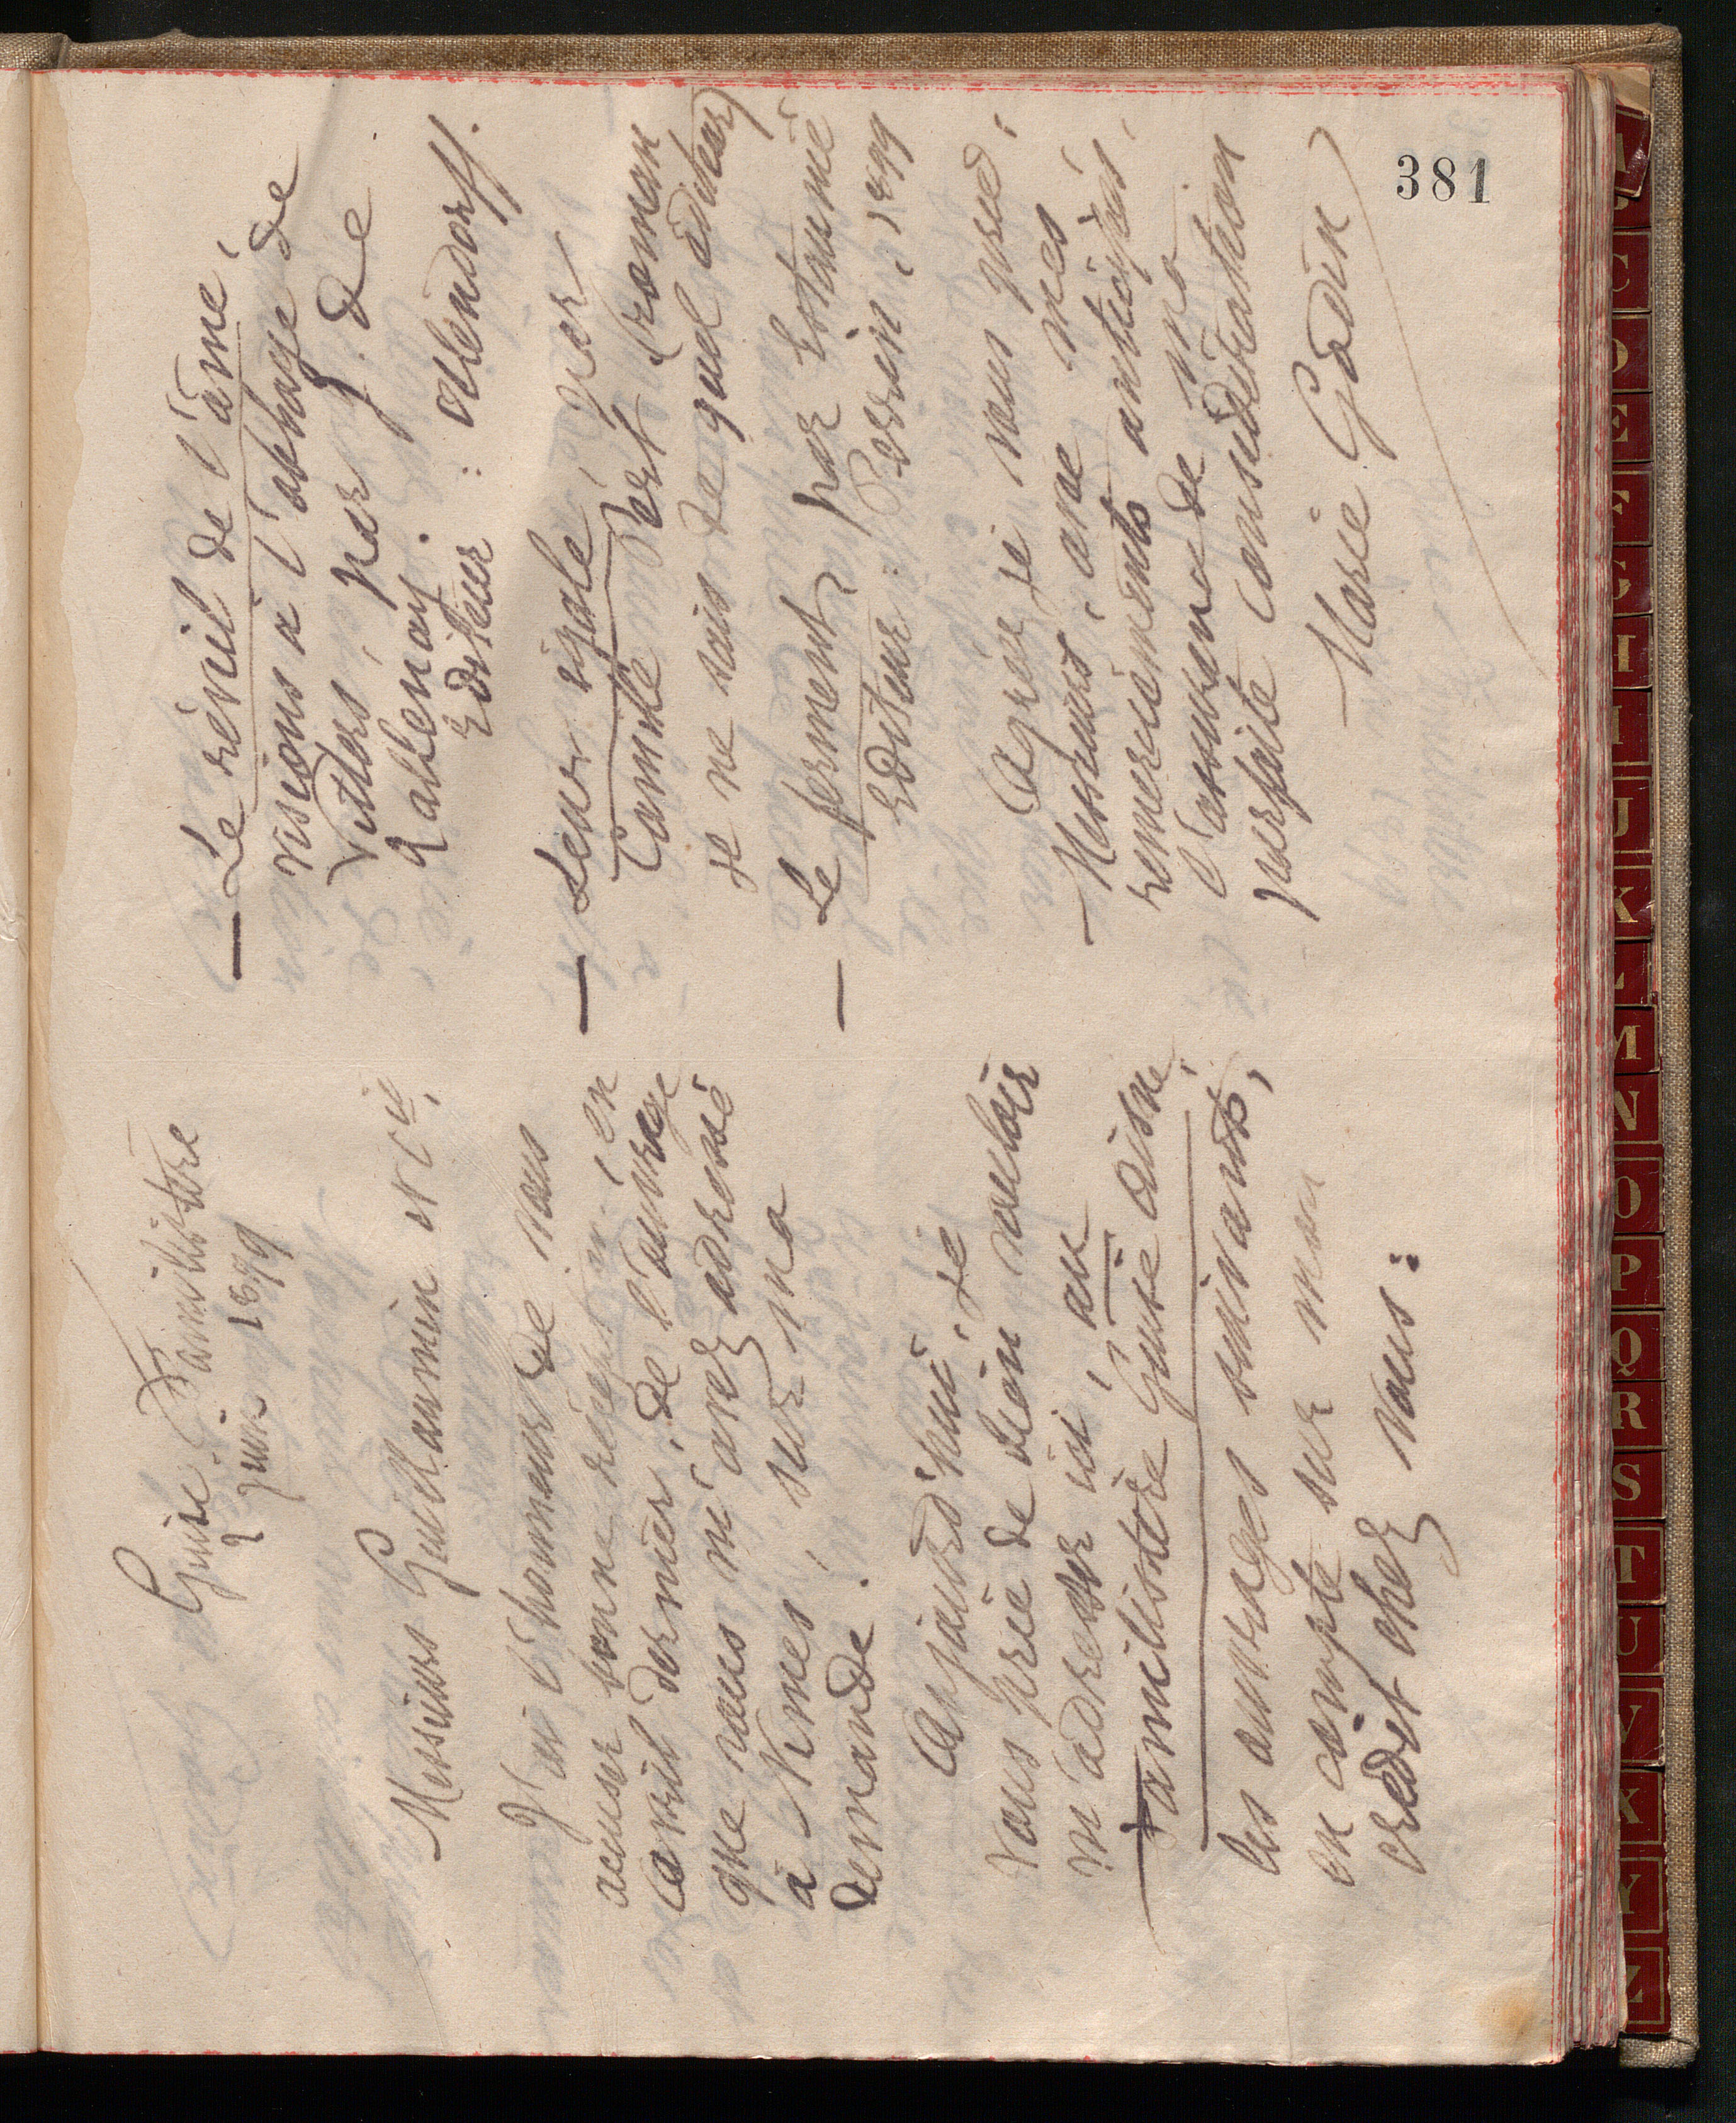 381
Guise Familistère
7 juin 1899
Messieurs Guillaumin et Cie,
J'ai l'honneur de vous
accuser bonne réception, en
Avril dernier, de l'ouvrage
que vous m'avez adressé
à Nimes, sur ma
demande.
Aujourd'hui, je
vous prie de bien vouloir
m'adresser ici, au
Familistère Guise Aisne,
les ouvrages suivants,
en compte sur mon
crédit chez vous :
— Le réveil de l'âme,
visions à l'abbaye de
Villers, par J. de
Tallenay.
Editeur : Ollendorff.
— Leur égale par
Camille Pert (roman
je ne sais de quel éditeur)
— Le ferment, par Estaunié
Editeur : Perrin, 1899
Agréez je vous prie,
Messieurs, avec mes
remerciements anticipés,
l'assurance de ma
parfaite considération
Marie Godin
A
C
D
E
F
G
I
J
K
L
M
N
O
P
Q
R
S
T
U
V
X
Y
Z